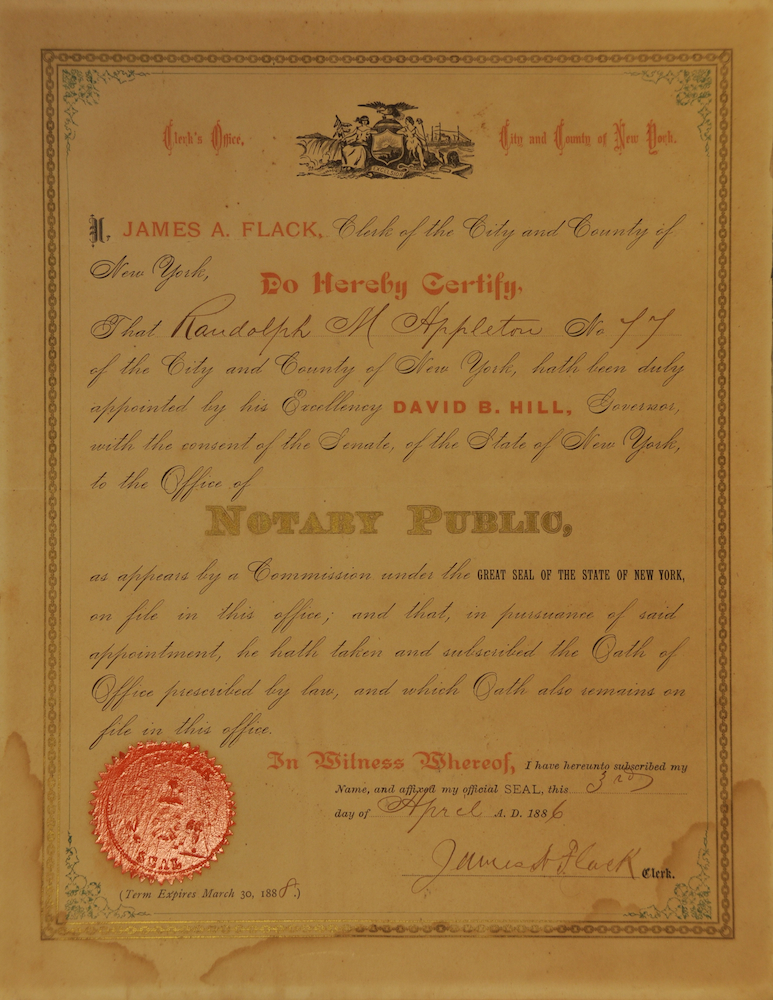 Clerk's Office,
City and County of New York.
I, JAMES A. FLACK, Clerk of the City and County of
New York,
Do Hereby Certify,
That Randolph M Appleton No 77
of the City and County of New York, hath been duly
appointed by his Excellency DAVID B. HILL, Governor,
with the consent of the Senate, of the State of New York,
to the Office of
NOTARY PUBLIC,
as appears by a Commission under the GREAT SEAL OF THE STATE OF NEW YORK,
on file in this office; and that, in pursuance of said
appointment, he hath taken and subscribed the Oath of
Office prescribed by law, and which Oath also remains on
file in this office.
In Witness Whereof, I have hereunto subscribed my
Name, and affixed my official SEAL, this 3rd
day of April A. D. 1886
James A Flack Clerk.
SEAL
(Term Expires March 30, 1888.)